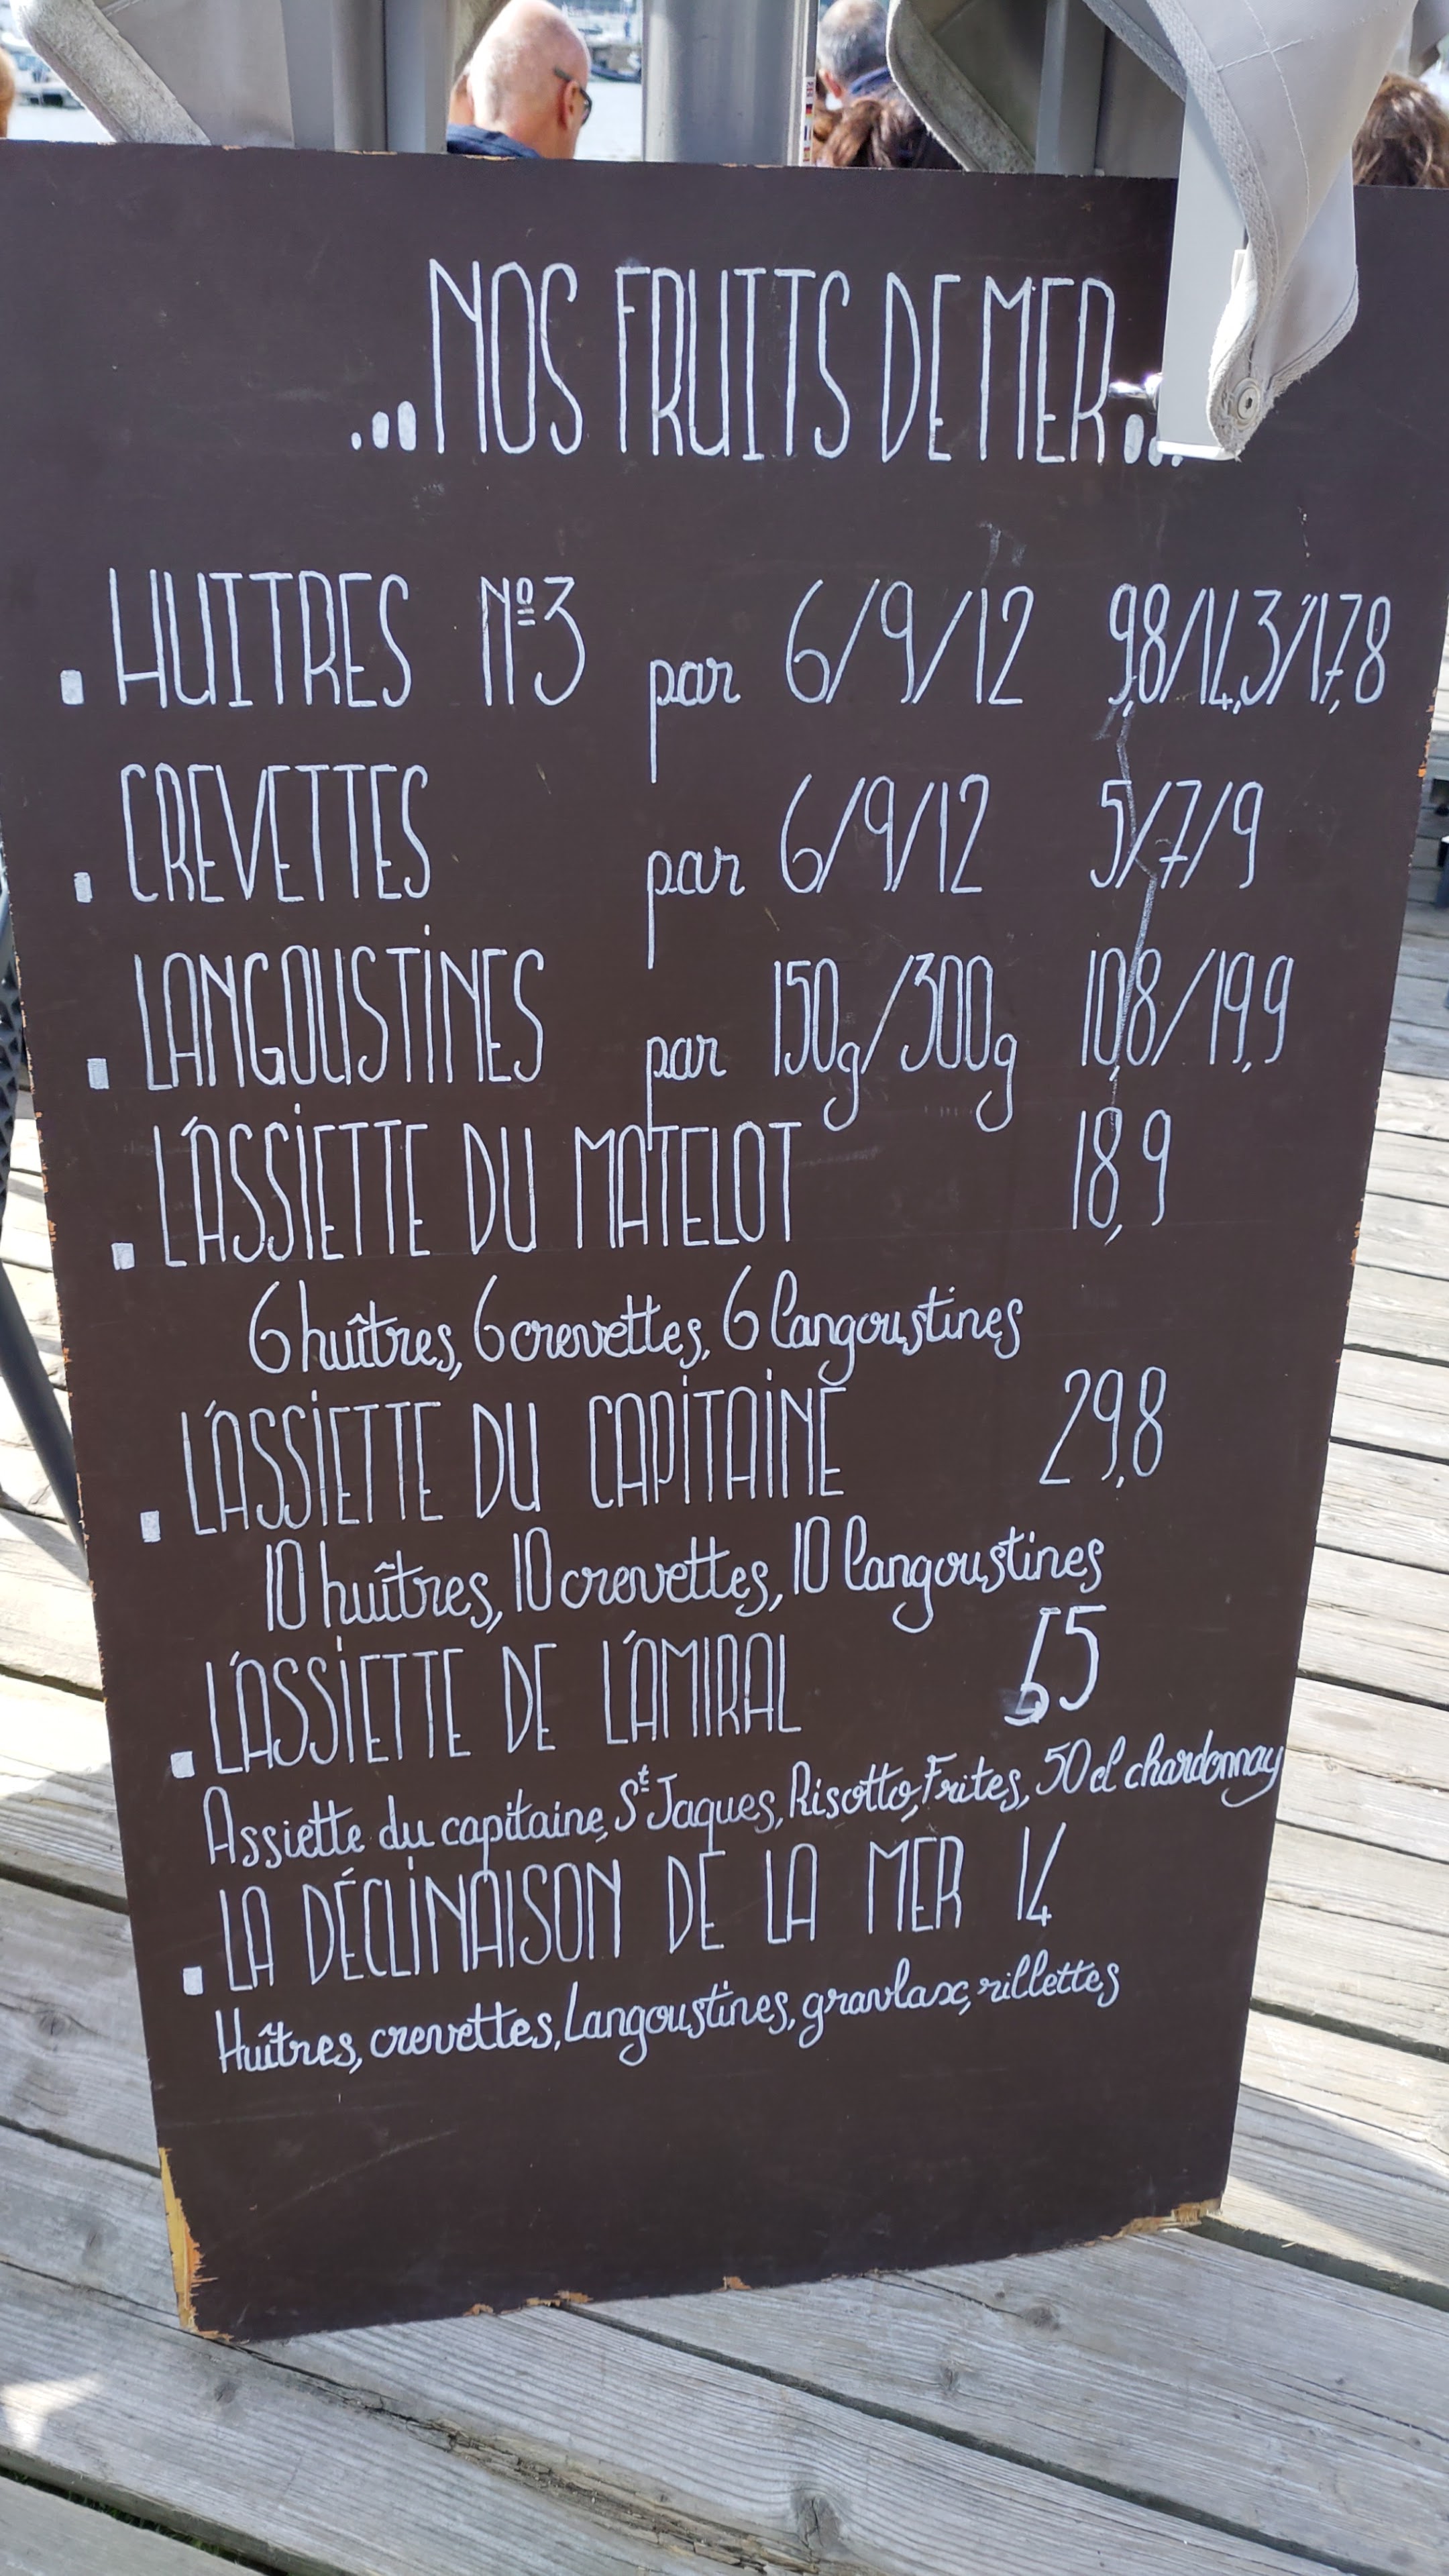 ...NOS FRUITS DE MER...
. HUITRES Nº3 par 6/9/12 9,8/14,3/17,8
. CREVETTES par 6/9/12 5/7/9
. LANGOUSTINES par 150g/300g 10,8/19,9
. L'ASSIETTE DU MATELOT 18,9
6 huîtres, 6 crevettes, 6 langoustines
. L'ASSIETTE DU CAPITAINE 29,8
10 huîtres, 10 crevettes, 10 langoustines
. L'ASSIETTE DE L'AMIRAL
Assiette du capitaine, St Jaques, Risotto, Frites, 50 cl chardonnay
. LA DÉCLINAISON DE LA MER 14
Huîtres, crevettes, Langoustines, gravlax, rillettes